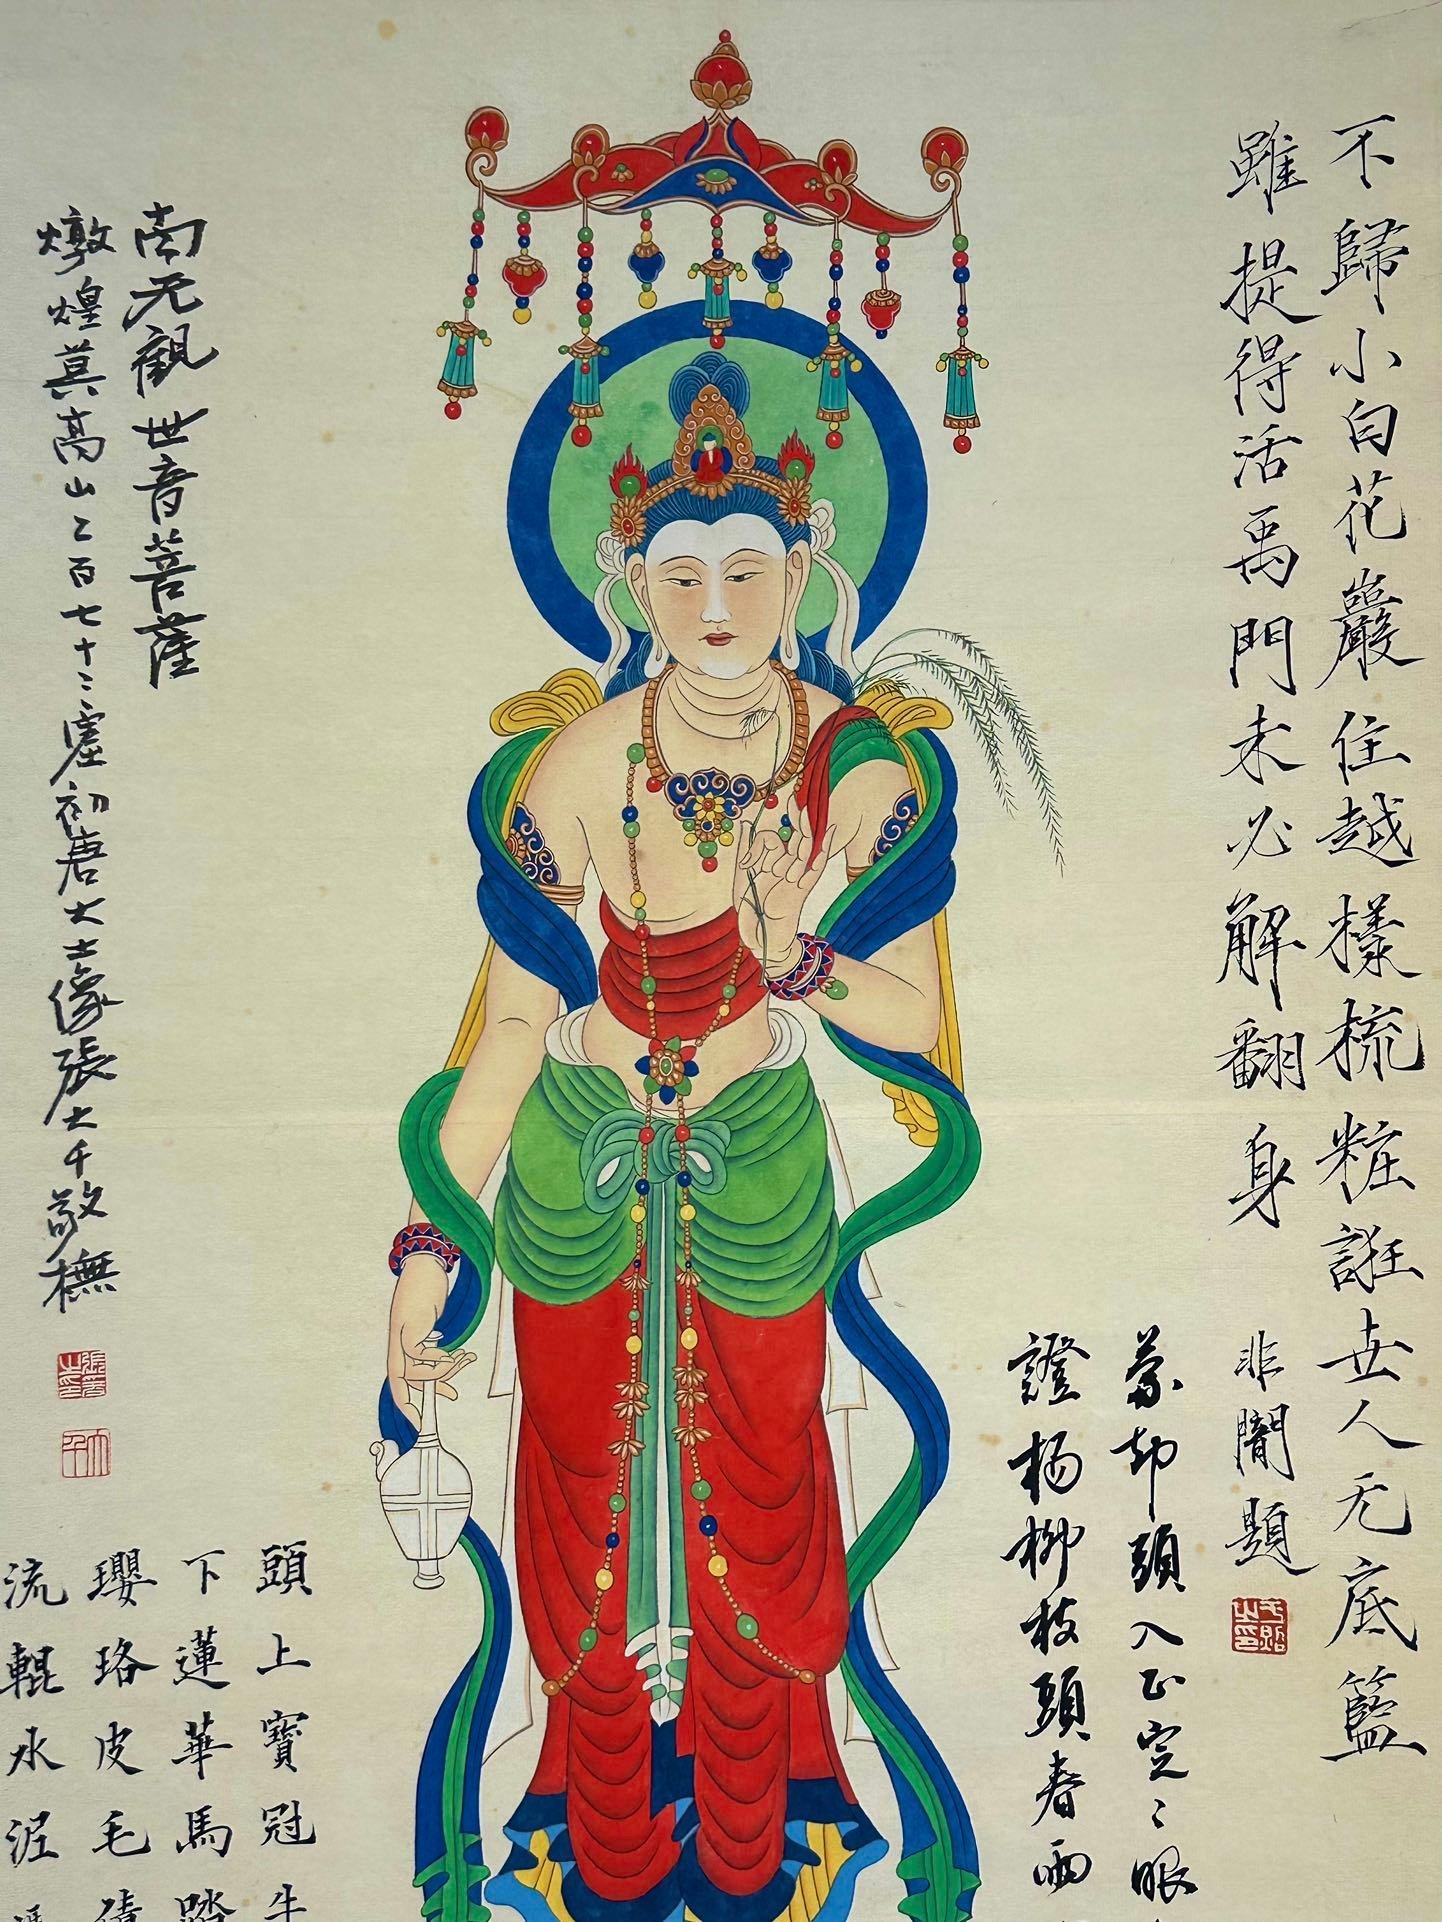 不歸小白花巖住越樣梳粧誑世人无底籃
雖提得活禹門未必解翻身
非闇題
蒙却頭入正定〻眼
證楊柳枝頭春雨
南无觀世音菩薩
燉煌莫高山二百七十二窟初唐大士像張大千敬橅
頭上寶冠牛
下蓮華馬踏
瓔珞皮毛
流輥水泥